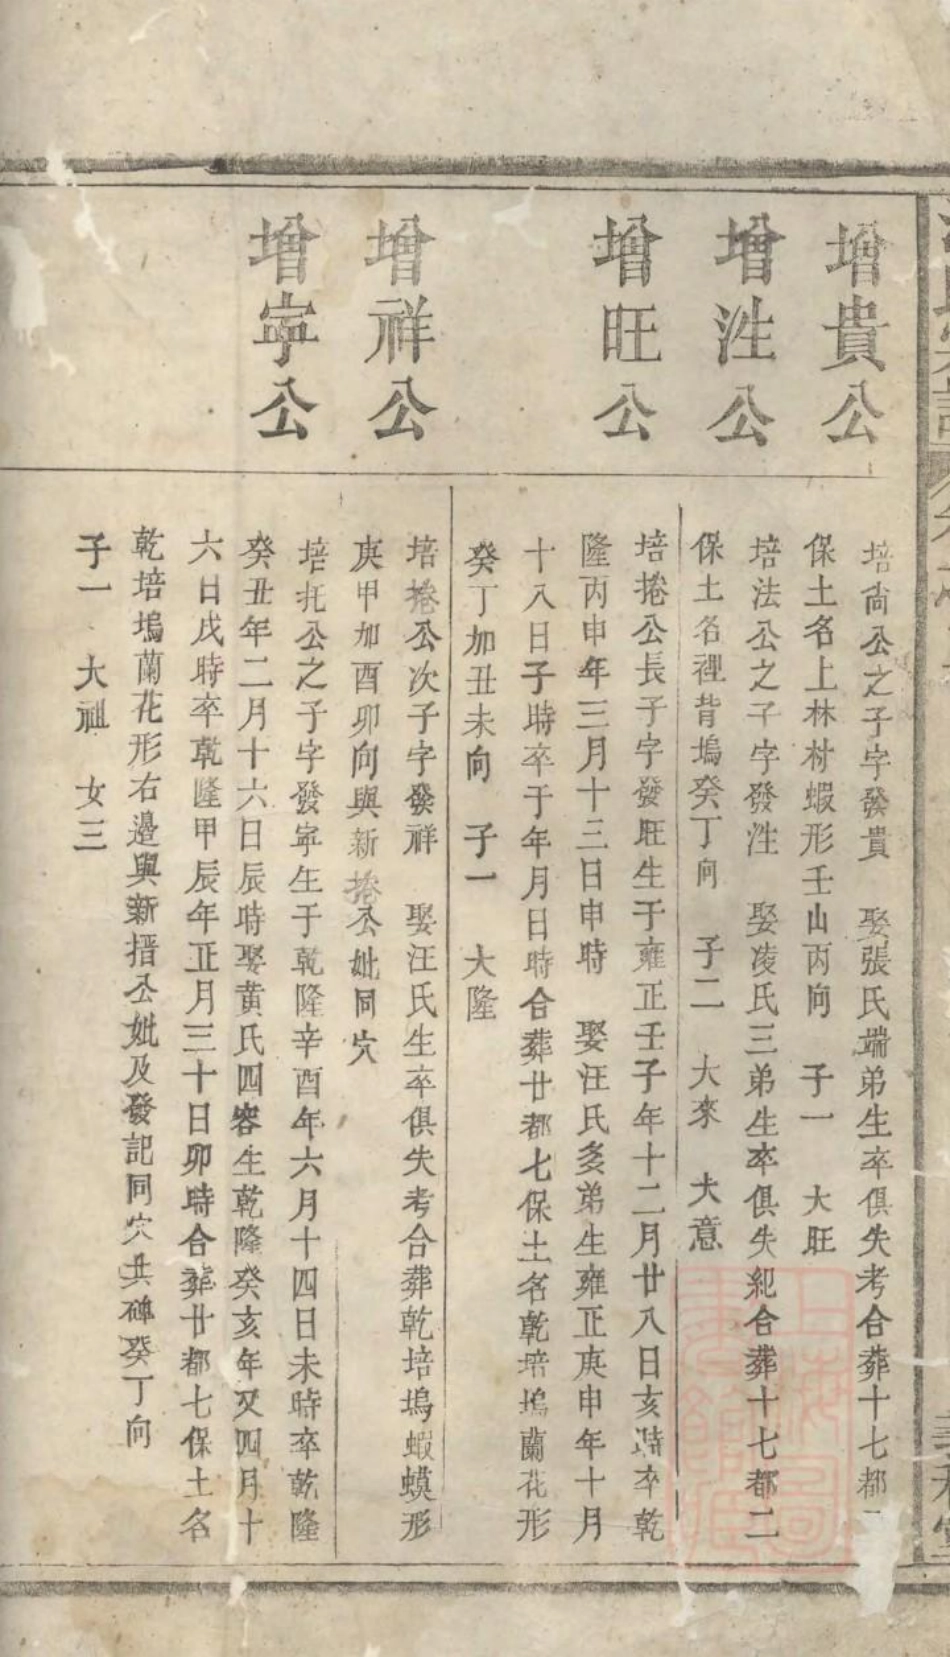 增貴公
培尚公之子字發貴　娶張氏端弟生卒俱失考合葬十七都
保土名上林村蝦形壬山丙向　子一　大旺
增泩公
培法公之子字發泩　娶凌氏三弟生卒俱失紀合葬十七都二
保土名裡背塢癸丁向　子二　大來　大意
增旺公
培捲公長子字發旺生于雍正壬子年十二月廿八日亥時卒乾
隆丙申年三月十三日申時　娶汪氏多弟生雍正庚申年十月
十八日子時卒于年月日時合葬廿都七保土名乾培塢蘭花形
癸丁加丑未向　子一　大隆
增祥公
培捲公次子字發祥　娶汪氏生卒俱失考合葬乾培塢蝦蟆形
庚甲加酉卯向與新捲公妣同穴
增寧公
培托公之子字發寧生于乾隆辛酉年六月十四日未時卒乾隆
癸丑年二月十六日辰時娶黄氏四容生乾隆癸亥年又四月十
六日戌時卒乾隆甲辰年正月三十日卯時合葬廿都七保土名
乾培塢蘭花形右邉與新搢公妣及發記同穴共碑癸丁向
子一　大祖　女三